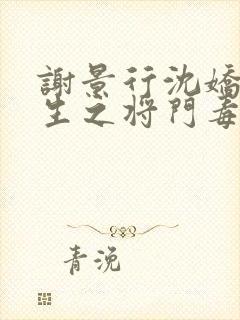 謝景行沈嬌
生之將門毒
青浼